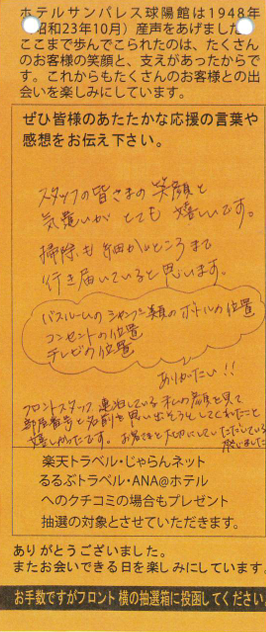 ホテルサンパレス球陽館は1948年
昭和23年10月）産声をあげました
ここまで歩んでこられたのは、たくさん
のお客様の笑顔と、支えがあったからで
す。これからもたくさんのお客様との出
会いを楽しみにしています。
ぜひ皆様のあたたかな応援の言葉や
感想をお伝え下さい。
スタッフの皆さまの笑顔と
気遣いが とても 嬉しいです。
掃除も 細かいところまで
行き届いていると思います。
バスルームのシャンプー類のボトルの位置
コンセントの位置
テレビの位置
ありがたい!!
フロントスタッフ 連泊している 私の顔を見て
部屋番号と名前を思い出そうとしてくれたこと
嬉しかったです。お客さまを大切にしていただいている
感じました
楽天トラベル・じゃらんネット
るるぶトラベル・ANA@ホテル
へのクチコミの場合もプレゼント
抽選の対象とさせていただきます。
ありがとうございました。
またお会いできる日を楽しみにしています。
お手数ですがフロント横の抽選箱に投函してください